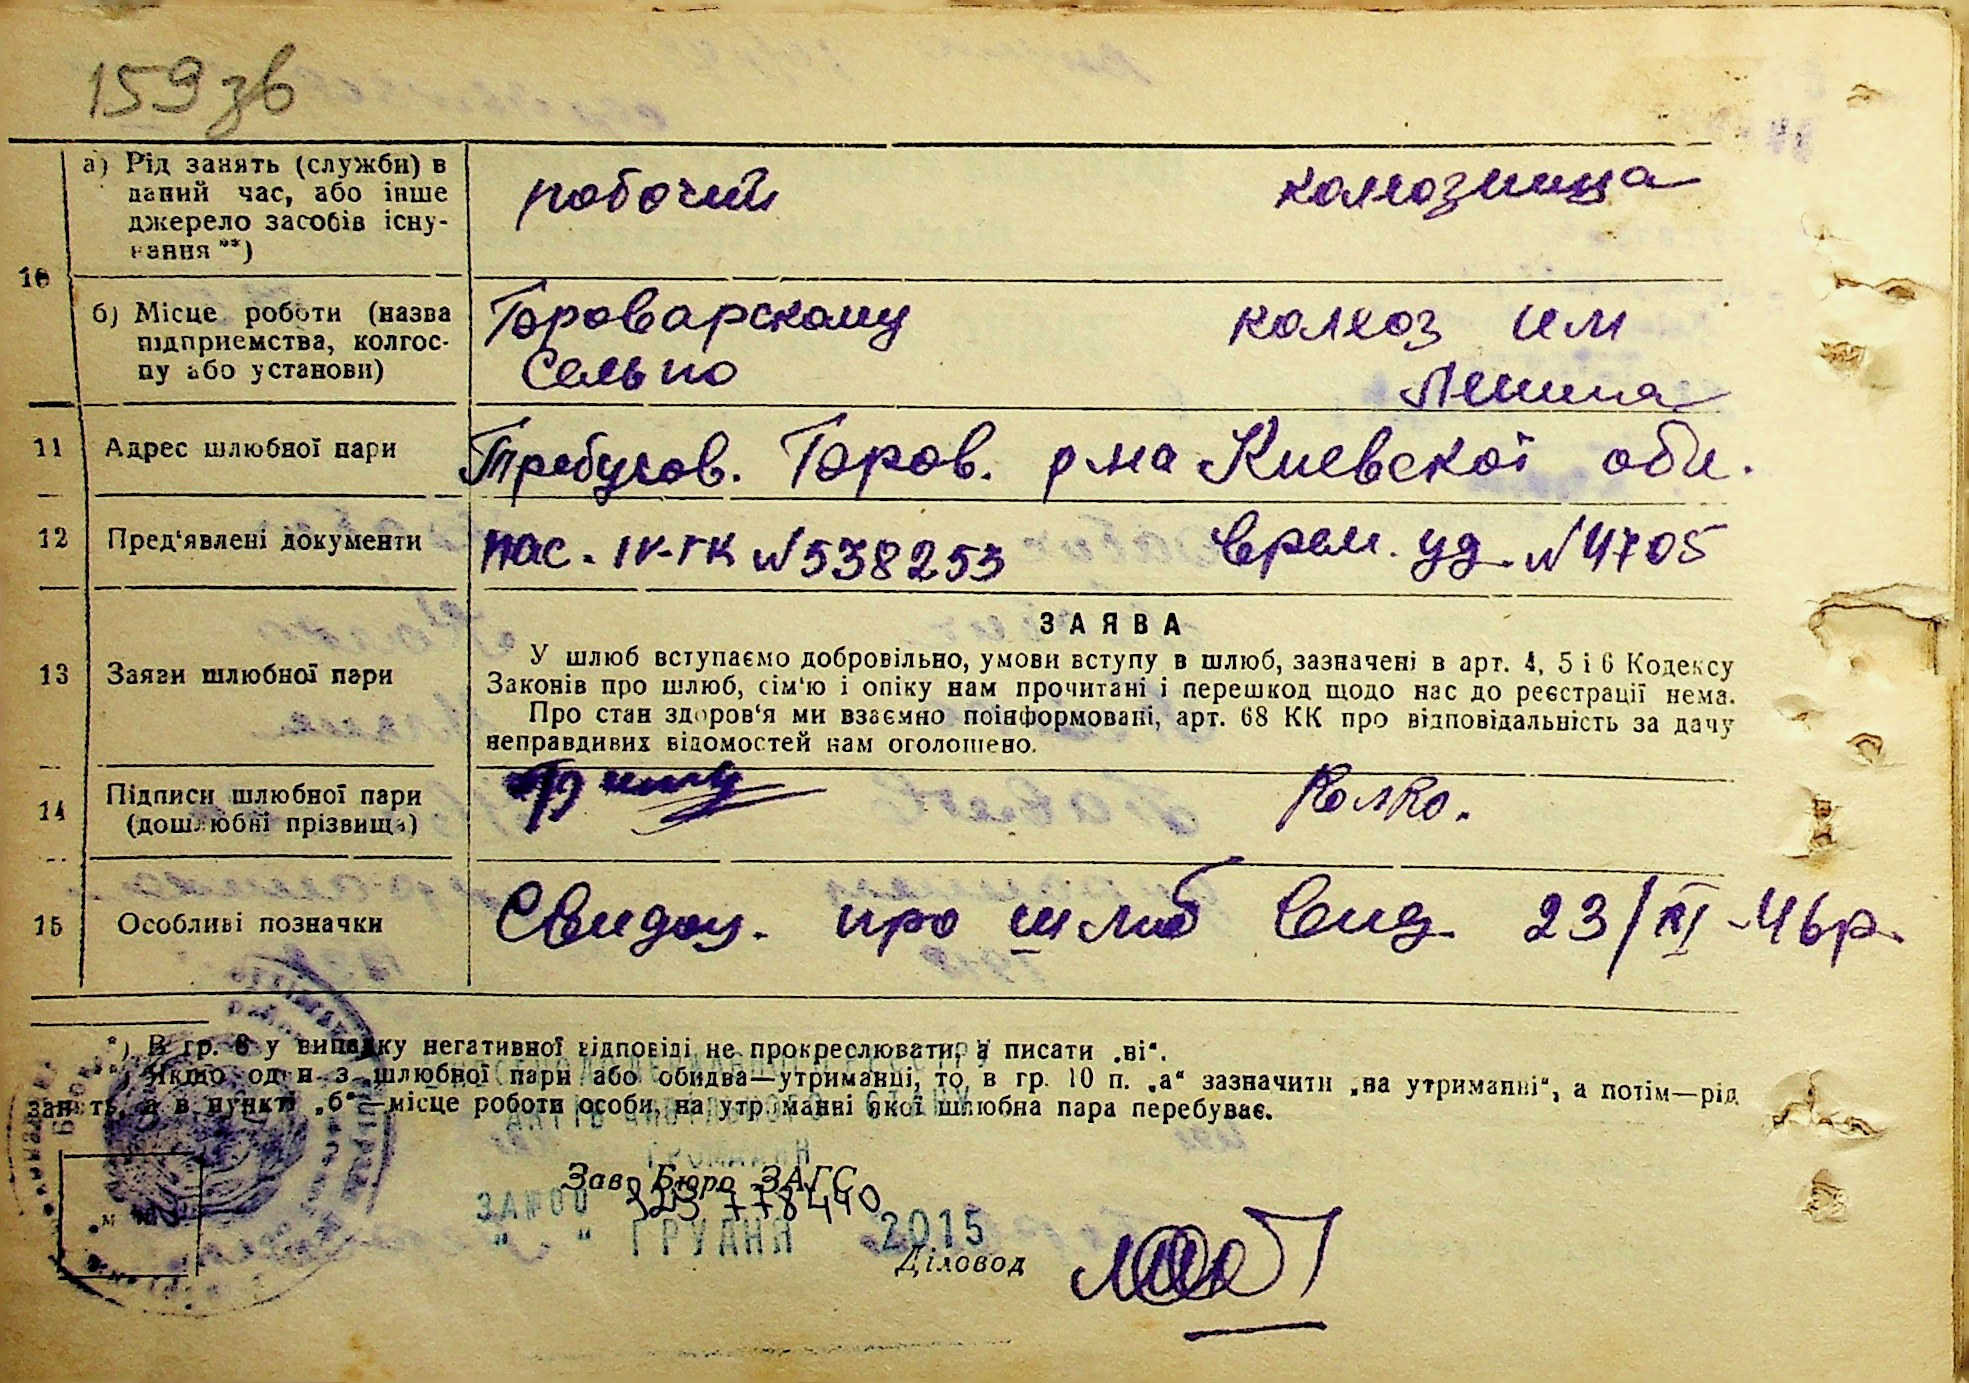 159 зв
а) Рід занять (служби) в
даний час, або інше
джерело засобів існу-
вання **)
робочий
колхозница
10
б) Місце роботи (назва
підприємства, колгос-
пу або установи)
Сельпо
колхоз им
Ленина
11 Адрес шлюбної пари
Требухов. р-на Киевскоі обл.
12 Пред'явлені документи
пас. IV-ГК №538253
Врем. уд. №4705
13 Заяви шлюбної пари
ЗАЯВА
У шлюб вступаємо добровільно, умови вступу в шлюб, зазначені в арт. 4, 5 і 6 Кодексу
Законів про шлюб, сім'ю і опіку нам прочитані і перешкод щодо нас до реєстрації нема.
Про стан здоров'я ми взаємно поінформовані, арт. 68 КК про відповідальність за дачу
неправдивих відомостей нам оголошено.
14 Підписи шлюбної пари
(дошлюбні прізвища)
15 Особливі позначки
Свидоц. про шлюб вид. 23/XI-46р.
*) В гр. 6 у випадку негативної відповіді не прокреслювати, а писати „ні“.
**) Якщо один з шлюбної пари або обидва—утриманці, то в гр. 10 п. „а“ зазначити „на утриманні“, а потім—рід
занять, а в пункті „б“—місце роботи особи, на утриманні якої шлюбна пара перебуває.
АКТІВ ЦИВІЛЬНОГО СТАНУ
ГРОМАДЯН
Зав. Бюро ЗАГС
323 778440
" " ГРУДНЯ 2015
Діловод